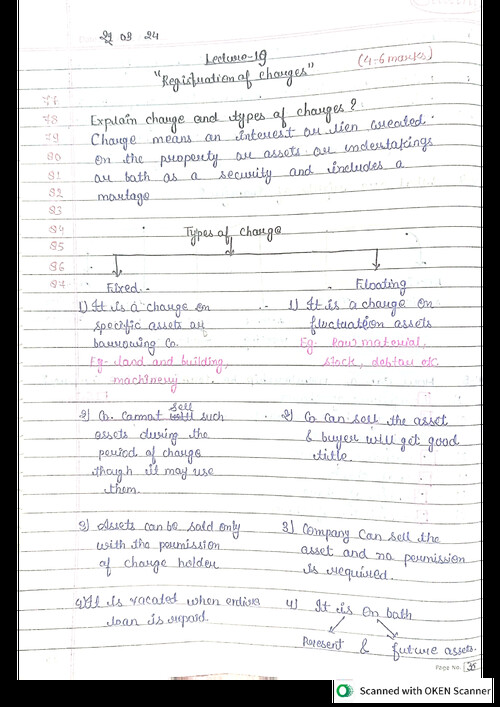 29 03 24
Lecture-19
(4-6 marks)
"Registration of charges"
77
78 Explain charge and types of charges?
79 Charge means an interest or lien created
80 on the property or assets or undertakings
81 or both as a security and includes a
82 mortage
83
84 Types of charge
85
86
87 Fixed. Floating
1) It is a charge on
specific assets or
borrowing Co.
Eg- land and building,
machinery
1) It is a charge on
fluctuation assets
Eg: Raw material,
stock, debtor etc.
2) Co. Cannot sell such
assets during the
period of charge
though it may use
them.
2) Co can sell the asset
& buyer will get good
title.
3) Assets can be sold only
with the permission
of charge holder
3) Company can sell the
asset and no permission
is required.
4) It is vacated when entire
loan is repaid.
4) It is on both
Present & future assets.
PAGE NO. 35
Scanned with OKEN Scanner